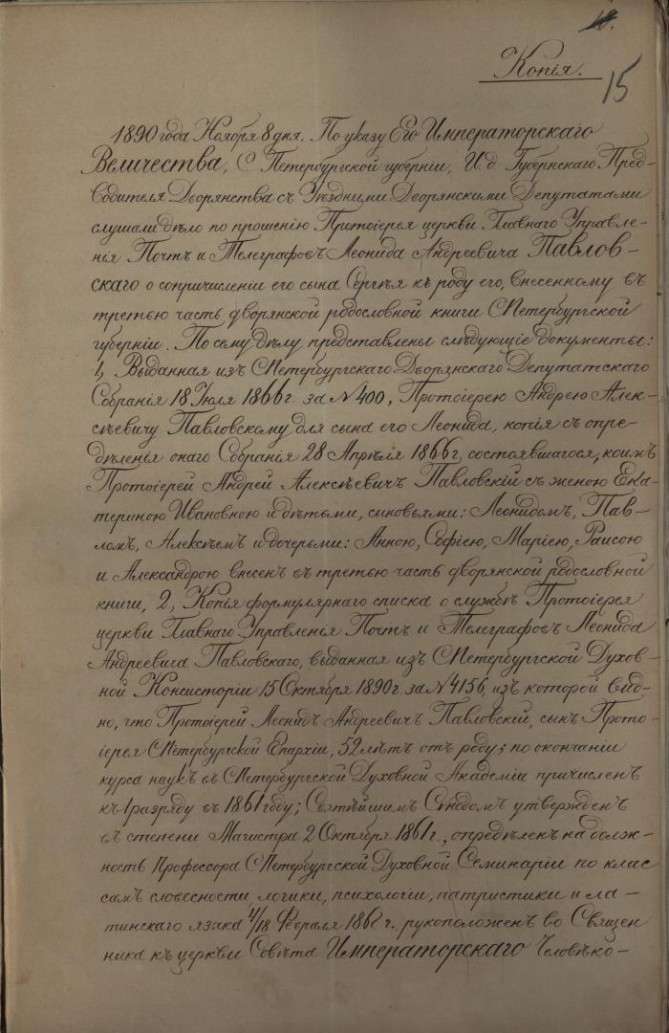 18.
Копія.
15
1890 года Ноября 8 дня. По указу Его Императорскаго
Величества, С Петербургской губерніи, И. д. Губернскаго Пред-
водителя Дворянства съ Уѣздными Дворянскими Депутатами
слушали дѣло по прошенію Протоіерея церкви Главнаго Управле-
нія Почтъ и Телеграфовъ Леонида Андреевича Павлов-
скаго о сопричисленіи его сына Сергѣя къ роду его, внесенному въ
третью часть дворянской родословной книги СПетербургской
губерніи. По сему дѣлу представлены слѣдующіе документы:
1, Выданная изъ СПетербургскаго Дворянскаго Депутатскаго
Собранія 18 Іюля 1866 г. за № 400, Протоіерею Андрею Алек-
сѣевичу Павловскому для сына его Леонида, копія съ опре-
дѣленія онаго Собранія 28 Апрѣля 1866 г. состоявшагося, коимъ
Протоіерей Андрей Алексѣевичъ Павловскій съ женою Ека-
териною Ивановною и дѣтьми, сыновьями: Леонидомъ, Пав-
ломъ, Алексѣемъ и дочерьми: Анною, Софіею, Маріею, Раисою
и Александрою внесенъ въ третью часть дворянской родословной
книги, 2, Копія формулярнаго списка о службѣ Протоіерея
церкви Главнаго Управленія Почтъ и Телеграфовъ Леонида
Андреевича Павловскаго, выданная изъ СПетербургской Духов-
ной Консисторіи 15 Октября 1890 г за № 4156, изъ которой вид-
но, что Протоіерей Леонидъ Андреевичъ Павловскій, сынъ Прото-
іерея СПетербургской Епархіи, 52 лѣтъ отъ роду; по окончаніи
курса наукъ въ СПетербургской Духовной Академіи причисленъ
къ 1 разряду въ 1861 году; Святѣйшимъ Синодомъ утвержденъ
въ степени Магистра 2 Октября 1861 г., опредѣленъ на долж-
ность Профессора СПетербургской Духовной Семинаріи по клас-
самъ словесности, логики, психологіи, патристики и ла-
тинскаго языка Февраля рукоположенъ во Священ
ника къ церкви Совѣта Императорскаго Человѣко-